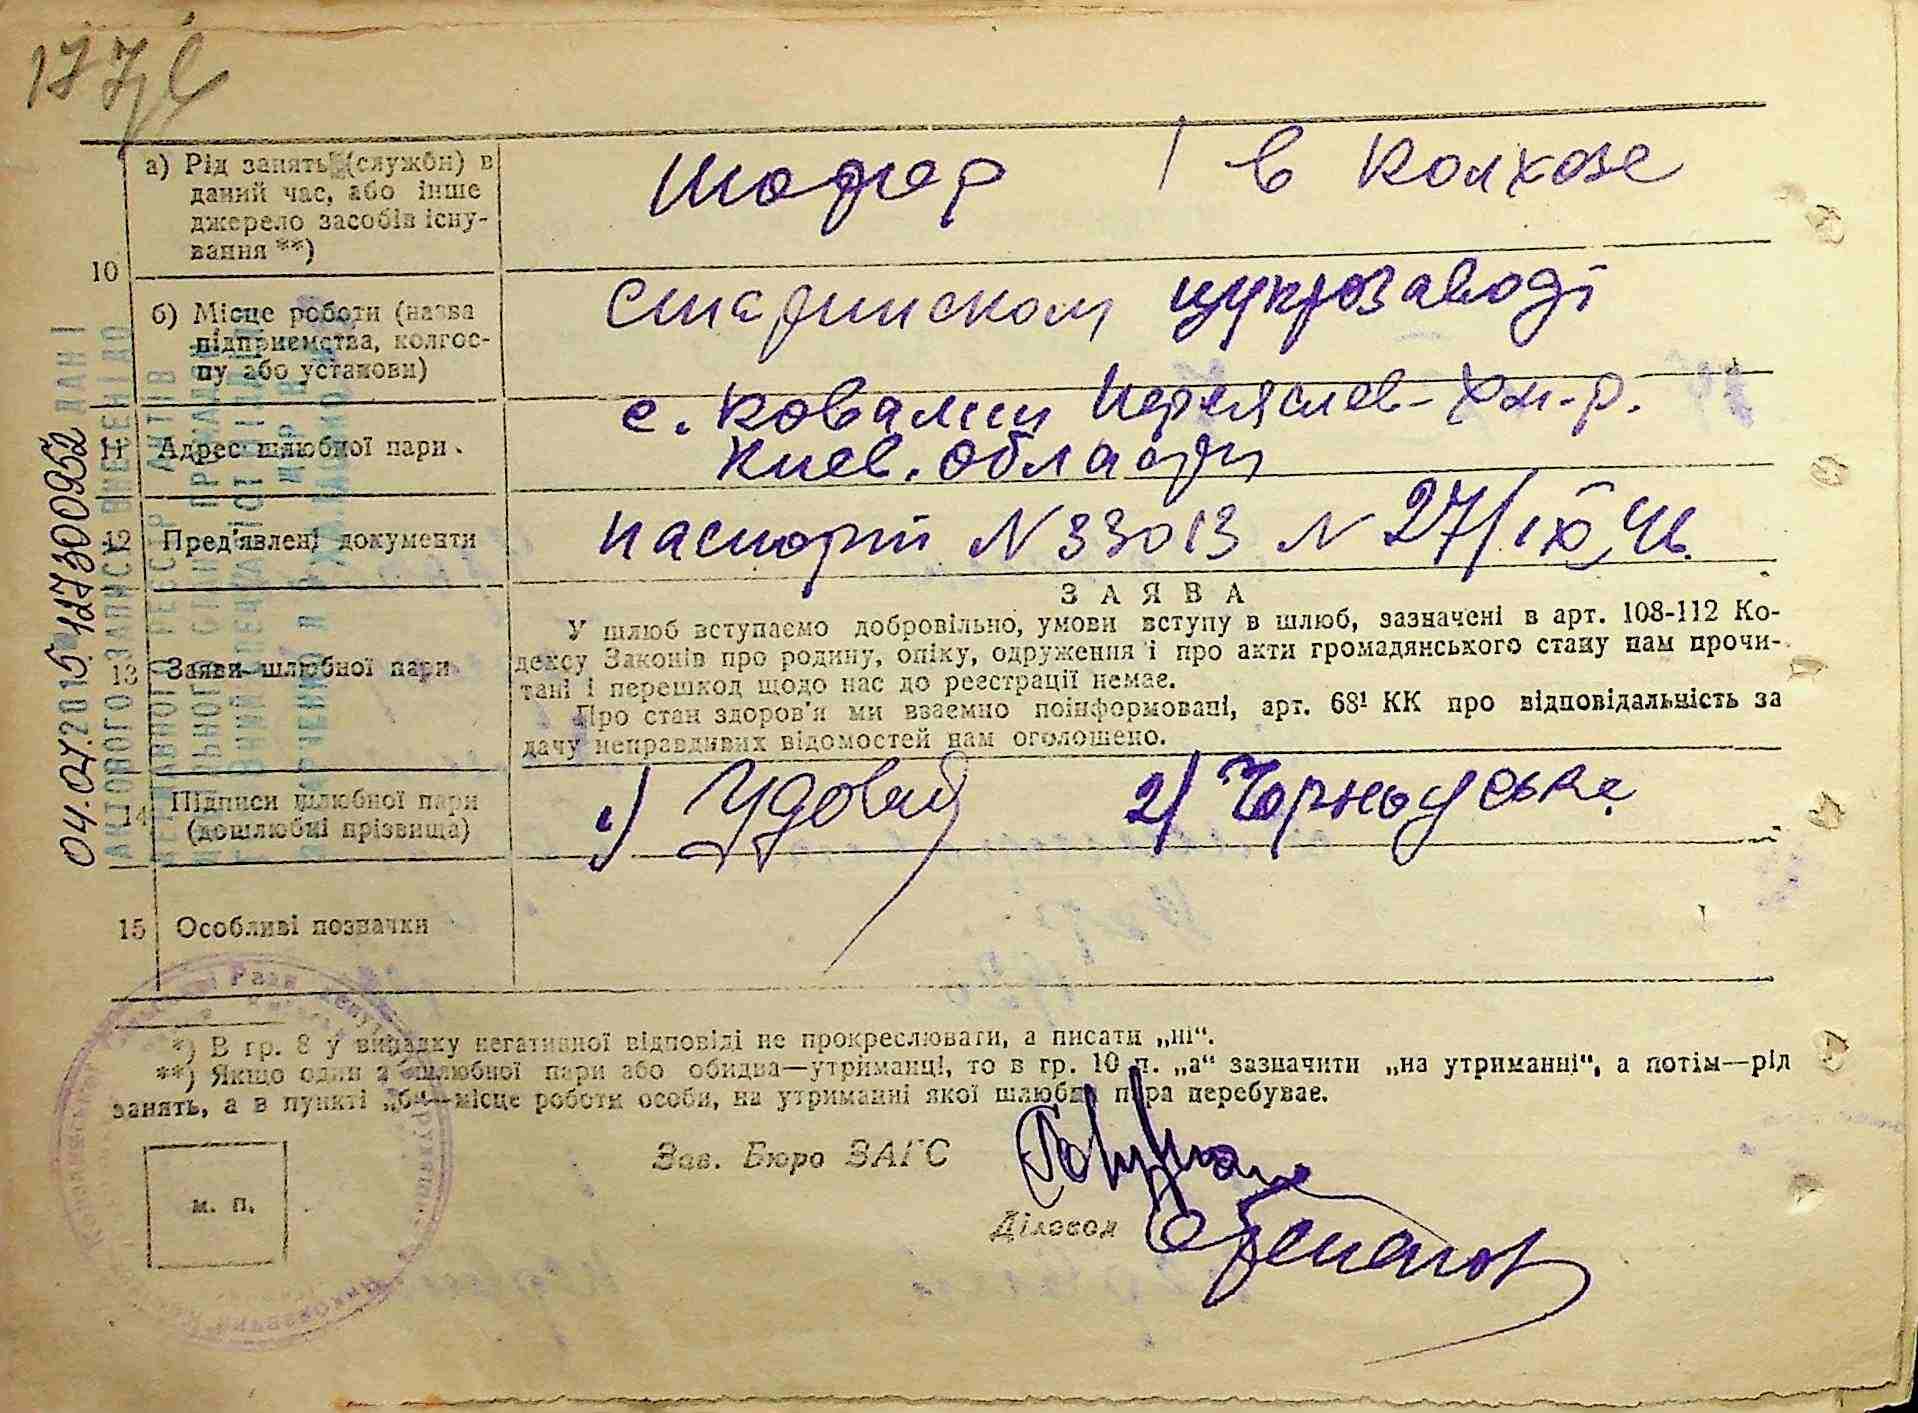 177
а) Рід занять (служби) в
даний час, або інше
джерело засобів існу-
вання **)
шофер / в колхозе
10
б) Місце роботи (назва
підприємства, колгос-
пу або установи)
старинском цукрозаводі
11 Адрес шлюбної пари.
с. Ковалин Переяслав-Хм-р.
Киев. области
12 Пред'явлені документи
паспорт N 33013 N 27/IX 46.
13 Заяви шлюбної пари
ЗАЯВА
У шлюб вступаємо добровільно, умови вступу в шлюб, зазначені в арт. 108-112 Ко-
дексу Законів про родину, опіку, одруження і про акти громадянського стану нам прочи-
тані і перешкод щодо нас до реєстрації немає.
Про стан здоров'я ми взаємно поінформовані, арт. 68¹ КК про відповідальність за
дачу неправдивих відомостей нам оголошено.
14 Підписи шлюбної пари
(дошлюбні прізвища)
1) Удовий 2) Чорноуська
15 Особливі позначки
*) В гр. 8 у випадку негативної відповіді не прокреслювати, а писати „ні“.
**) Якщо один з шлюбної пари або обидва—утриманці, то в гр. 10 п. „а“ зазначити „на утриманні“, а потім—рід
занять, а в пункті „б“—місце роботи особи, на утриманні якої шлюбна пара перебуває.
Зав. Бюро ЗАГС
Діловод
м. п.
04.07.2015 127300952
ДАНІ
АКТОВОГО ЗАПИСУ ВНЕСЕНІ ДО